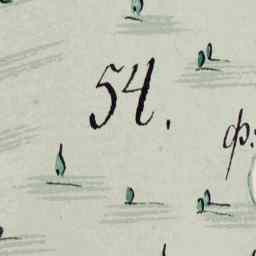 54.
ф.